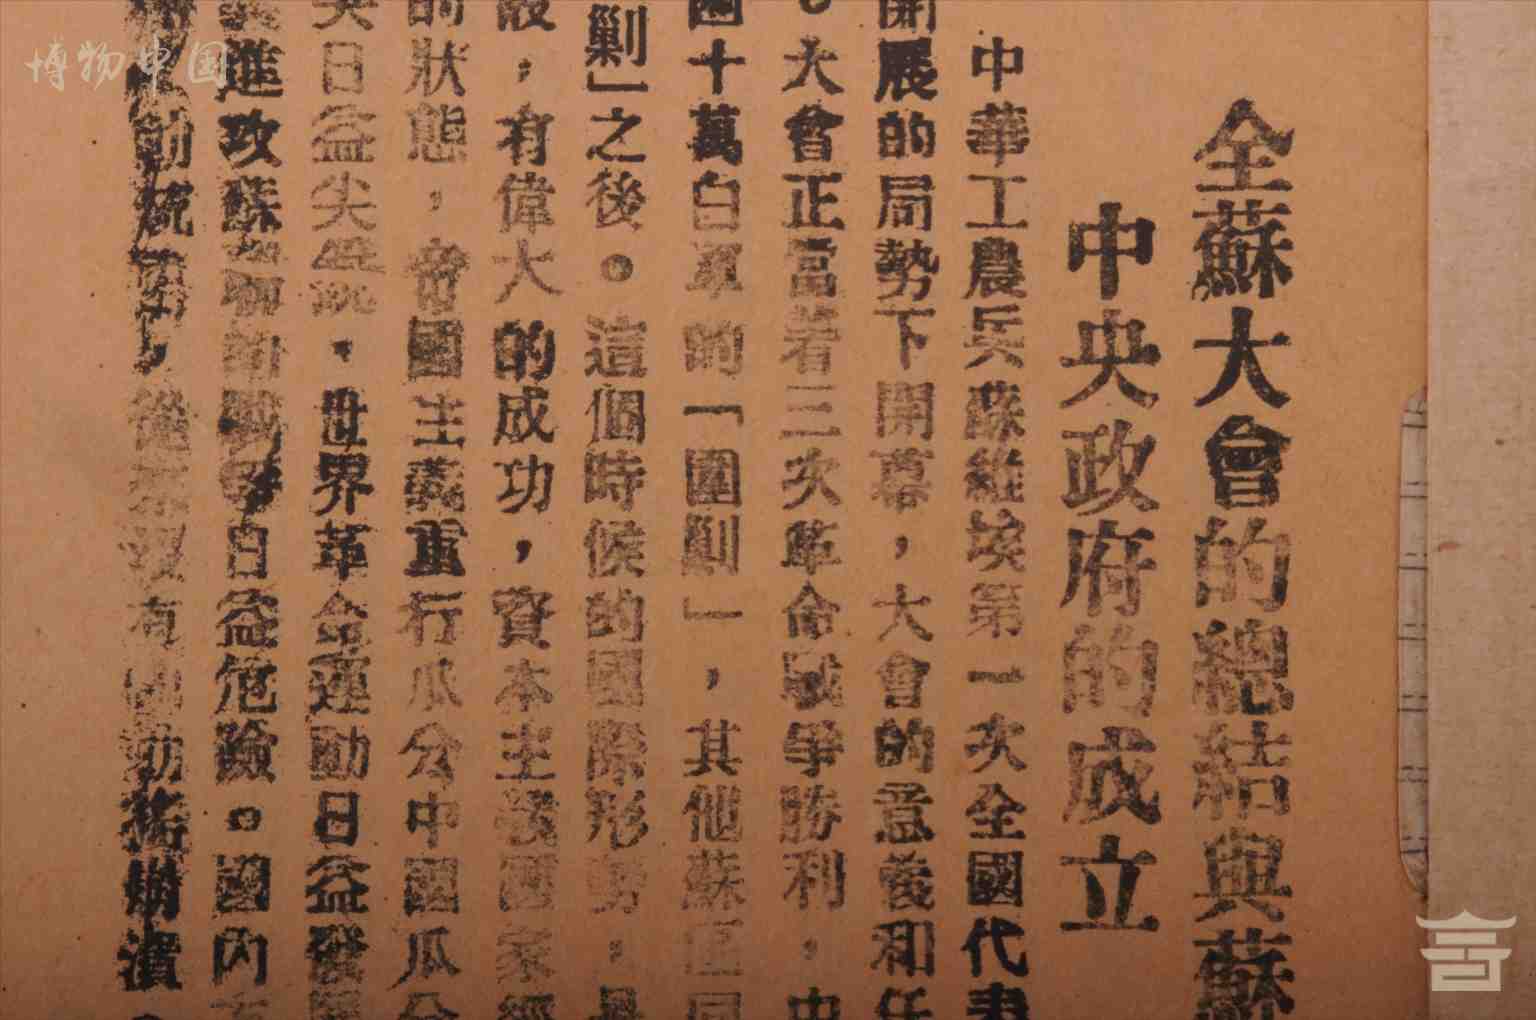 博物中国
全蘇大會的總結與蘇
中央政府的成立
中華工農兵蘇維埃第一次全國代表
開展的局勢下開幕，大會的意義和任
。大會正當着三次革命戰爭勝利，中
團十萬白軍的「圍剿」，其他蘇區同
剿」之後。這個時候的國際形勢，是
設，有偉大的成功，資本主義國家經
的狀態，帝國主義重行瓜分中國瓜分
尖日益尖銳，世界革命運動日益發展
進攻蘇聯的戰爭日益危險。國內
動統治，從來沒有崩潰。